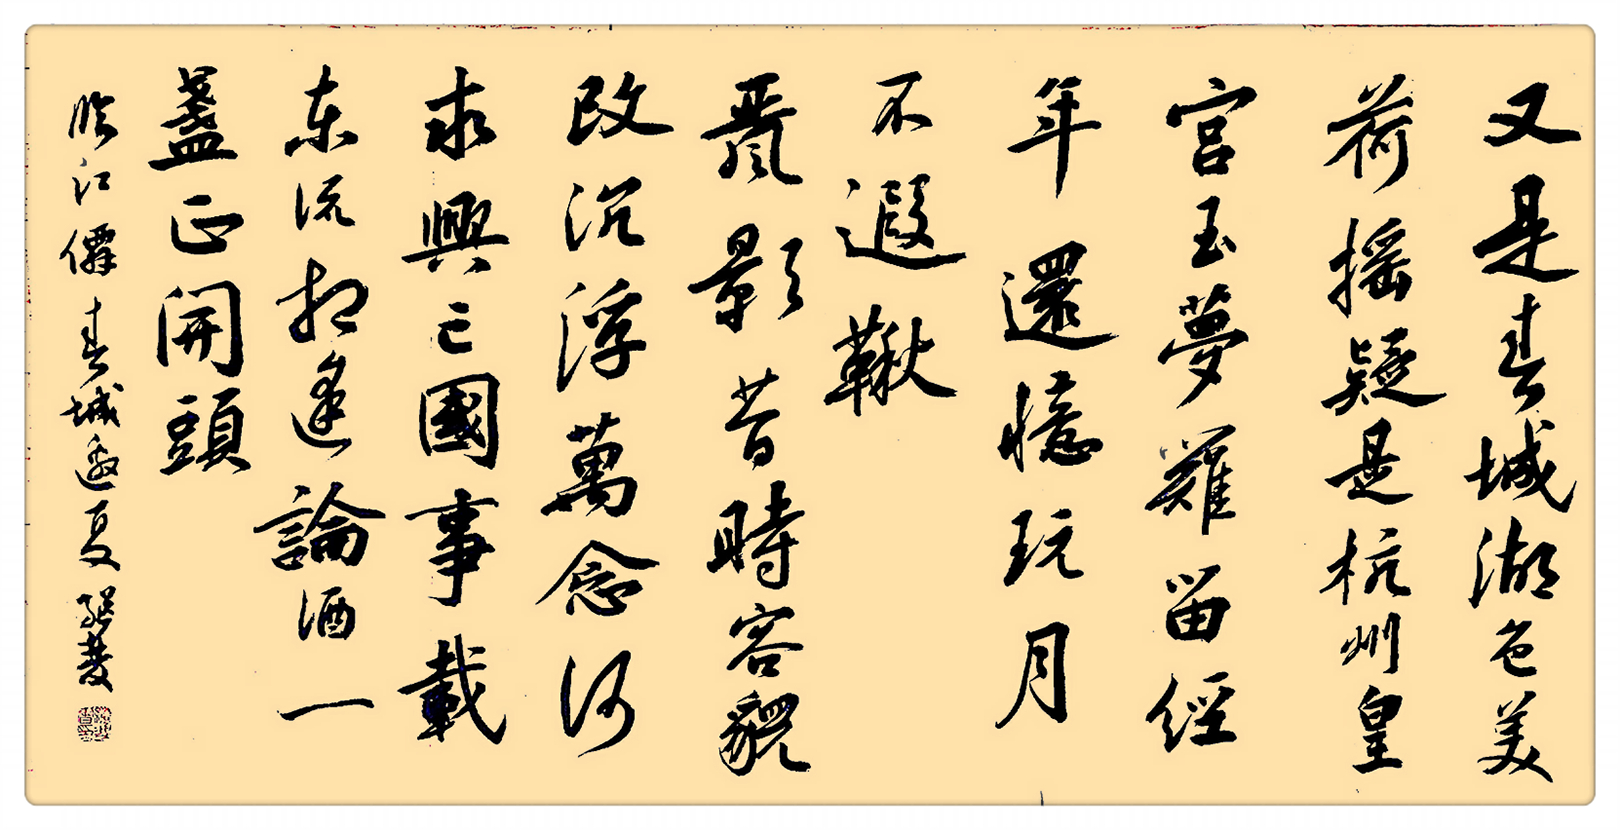 又是春城湖色美
荷摇疑是杭州皇
宫玉夢難留經
年還憶玩月
不遐鞦
影昔時容貌
改沉浮萬念何
求興亡國事載
东流相逢論酒一
盞正開頭
臨江僊春城遨夏